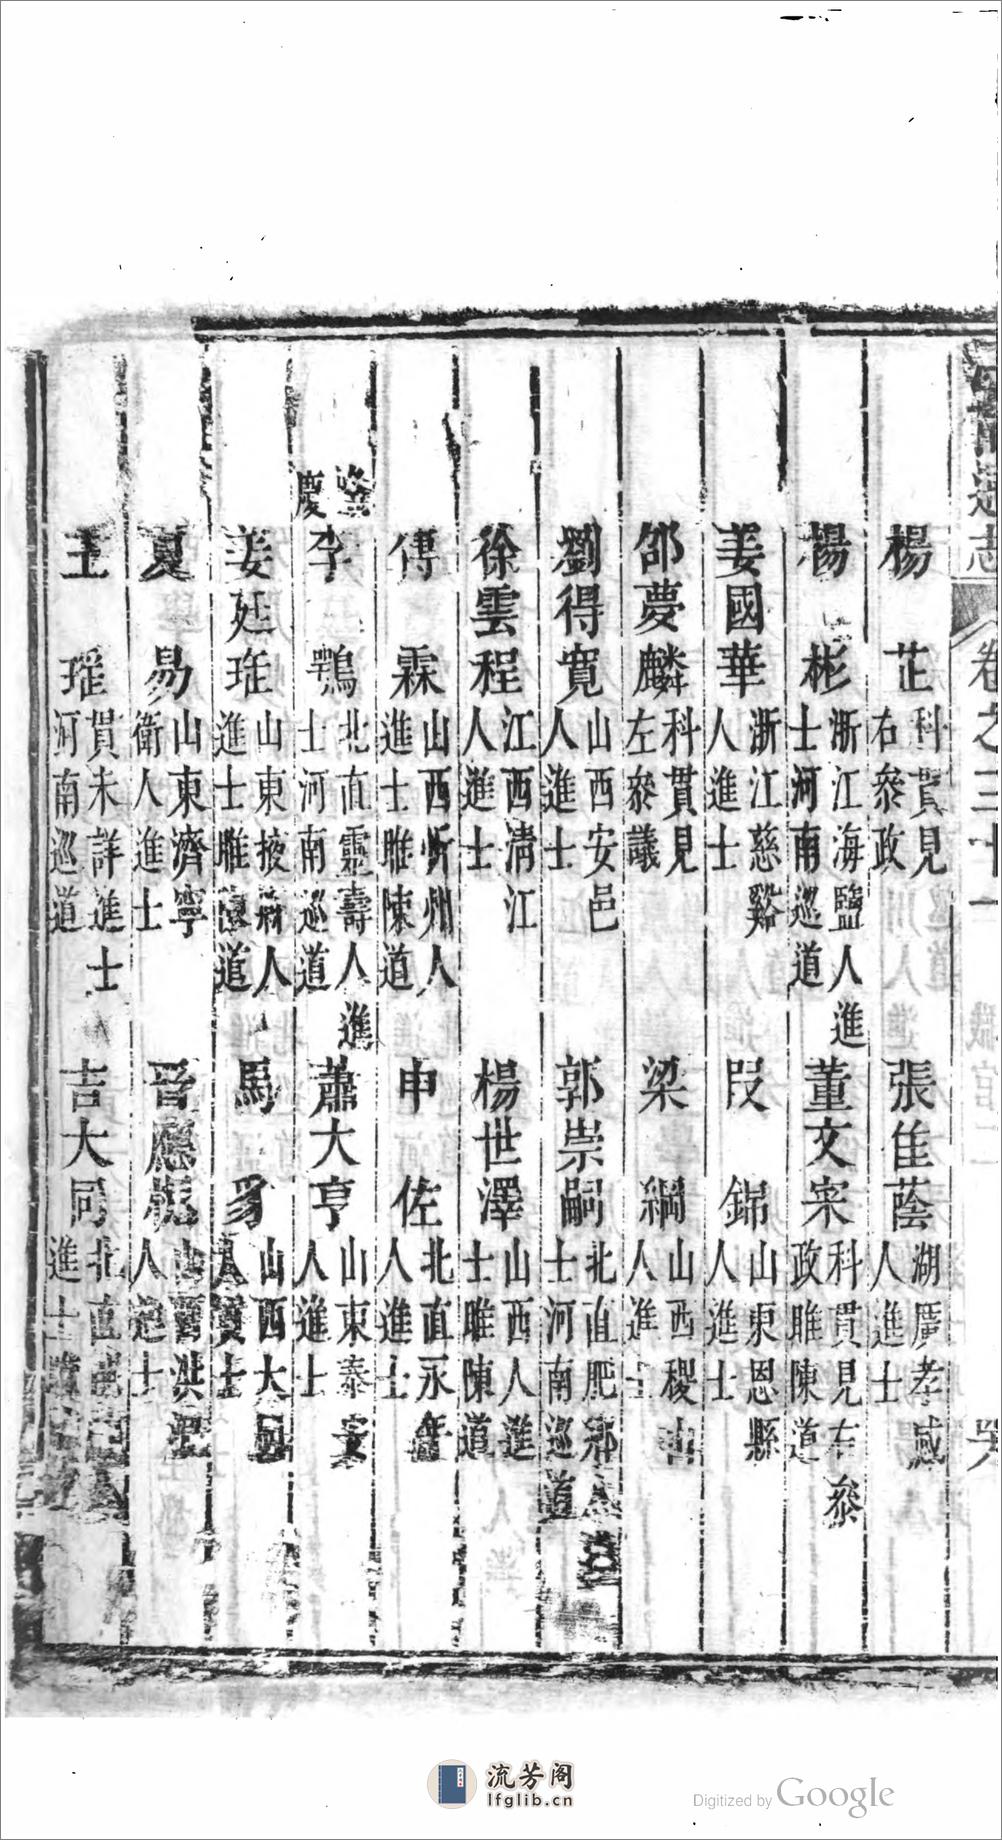 河南通志 卷之三十一 職官二
楊芷 科貫見右叅政 張隹蔭 湖廣孝感人進士
楊彬 浙江海鹽人進士河南巡道 董文宷 科貫見右叅政睢陳道
姜國華 浙江慈谿人進士 段錦 山東恩縣人進士
邵夢麟 科貫見左叅議 梁綱 山西稷山人進士
劉得寛 山西安邑人進士 郭崇嗣 北直肥鄉人進士河南巡道
徐雲程 江西清江人進士 楊世澤 山西人進士睢陳道
傅霖 山西忻州人進士睢陳道 申佐 北直永年人進士
隆慶
李鶚 北直靈壽人進士河南巡道 蕭大亨 山東泰安人進士
姜廷珤 山東掖人進士睢道 馬豸 山西大同人進士
夏昜 山東濟寧衛人進士 晉應槐 山西洪洞人進士
王瑶 貫未詳進士河南巡道 吉大同 北直進士
流芳阁
lfglib.cn
Digitized by Google